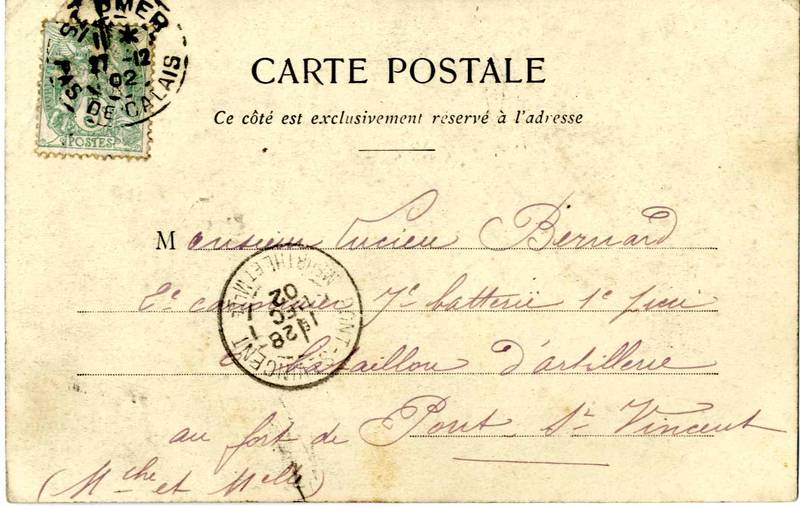 ST OMER
PAS DE CALAIS
-12
02
POSTES
CARTE POSTALE
Ce côté est exclusivement réservé à l'adresse
Monsieur Lucien Bernard
2e canonnier 7e batterie 1e
bataillon d'artillerie
au fort de Pont St Vincent
(Mthe et Mlle)
PONT-ST-VINCENT
MEURTHE ET MLLE
28
DEC
02